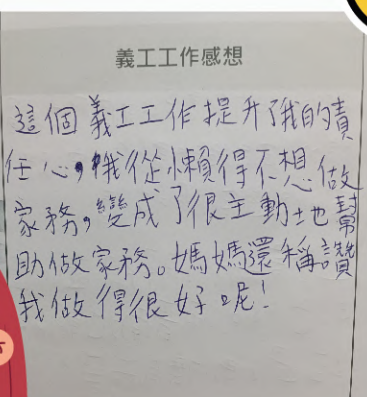 義工工作感想
這個義工工作提升了我的責
任心，我從懶得不想做
家務，變成了很主動地幫
助做家務。媽媽還稱讚
我做得很好呢！